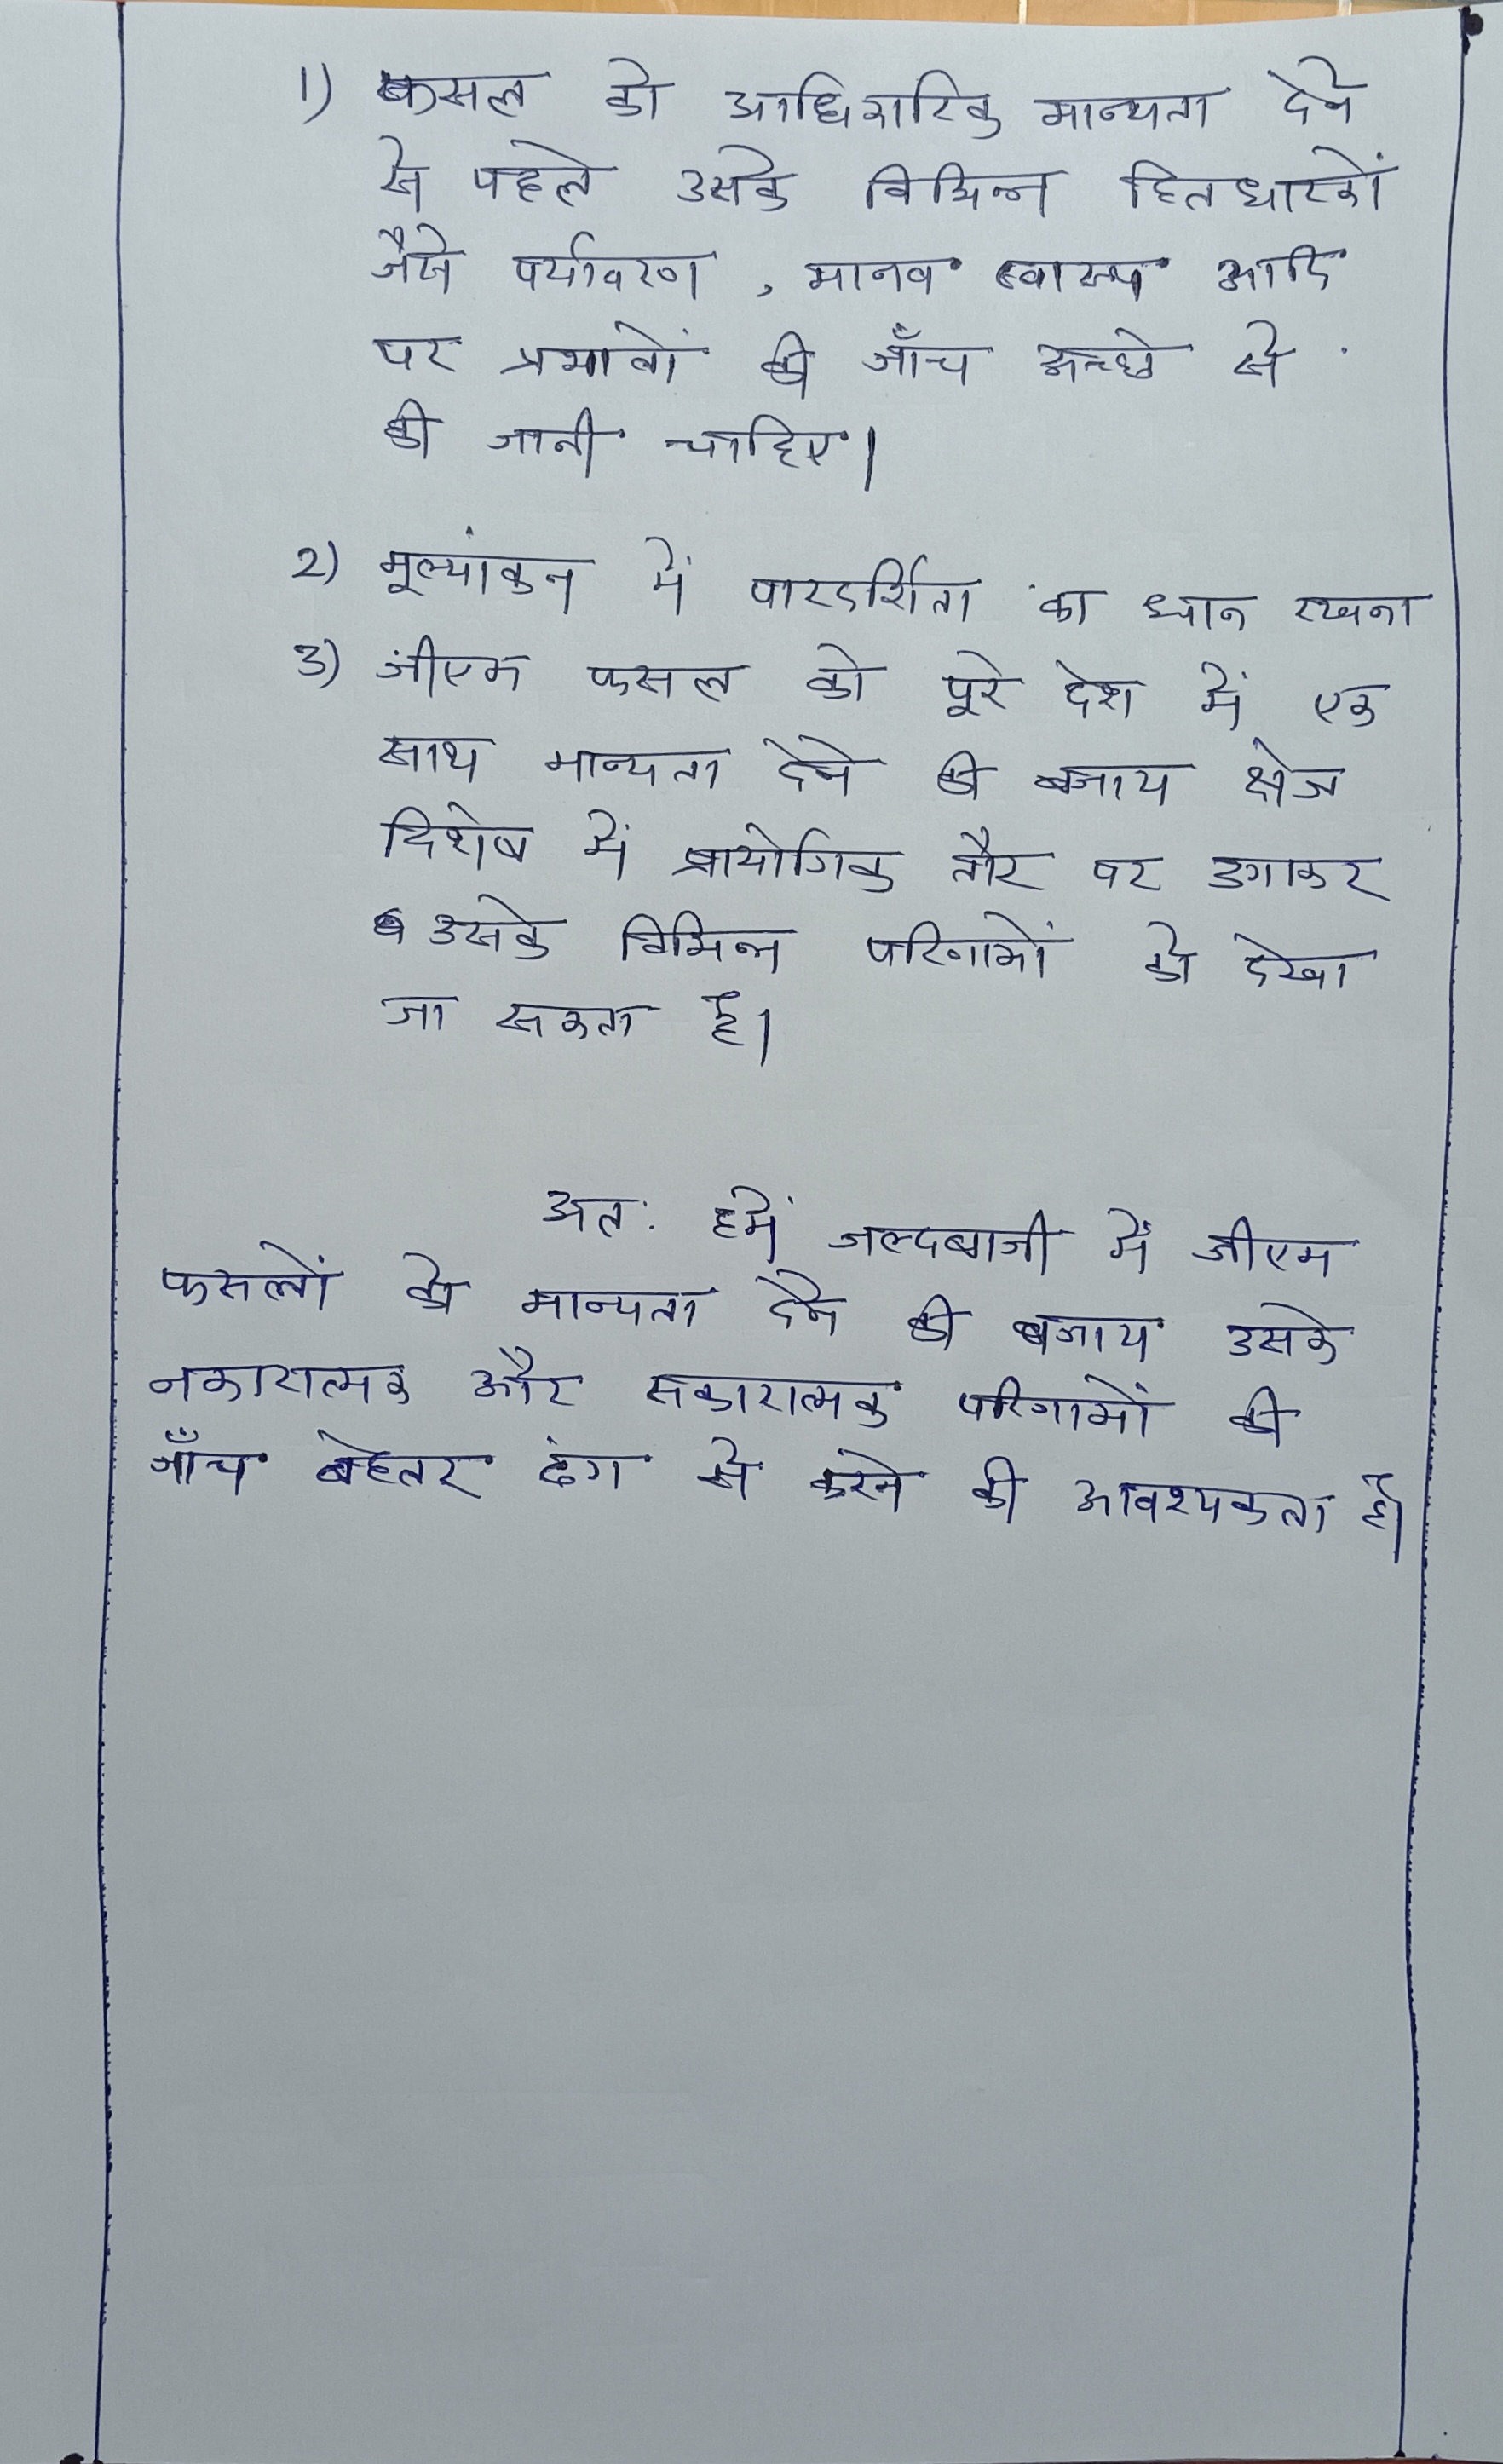 1) फसल को आधिकारिक मान्यता देने
से पहले उसके विभिन्न हितधारकों
जैसे पर्यावरण , मानव स्वास्थ्य आदि
पर प्रभावों की जाँच अच्छे से
की जानी चाहिए।
2) मूल्यांकन में पारदर्शिता का ध्यान रखना
3) जीएम फसल को पूरे देश में एक
साथ मान्यता देने की बजाय क्षेत्र
विशेष में प्रायोगिक तौर पर उगाकर
उसके विभिन्न परिणामों को देखा
जा सकता है।
अतः हमें जल्दबाजी में जीएम
फसलों को मान्यता देने की बजाय उसके
नकारात्मक और सकारात्मक परिणामों की
जाँच बेहतर ढंग से करने की आवश्यकता है।